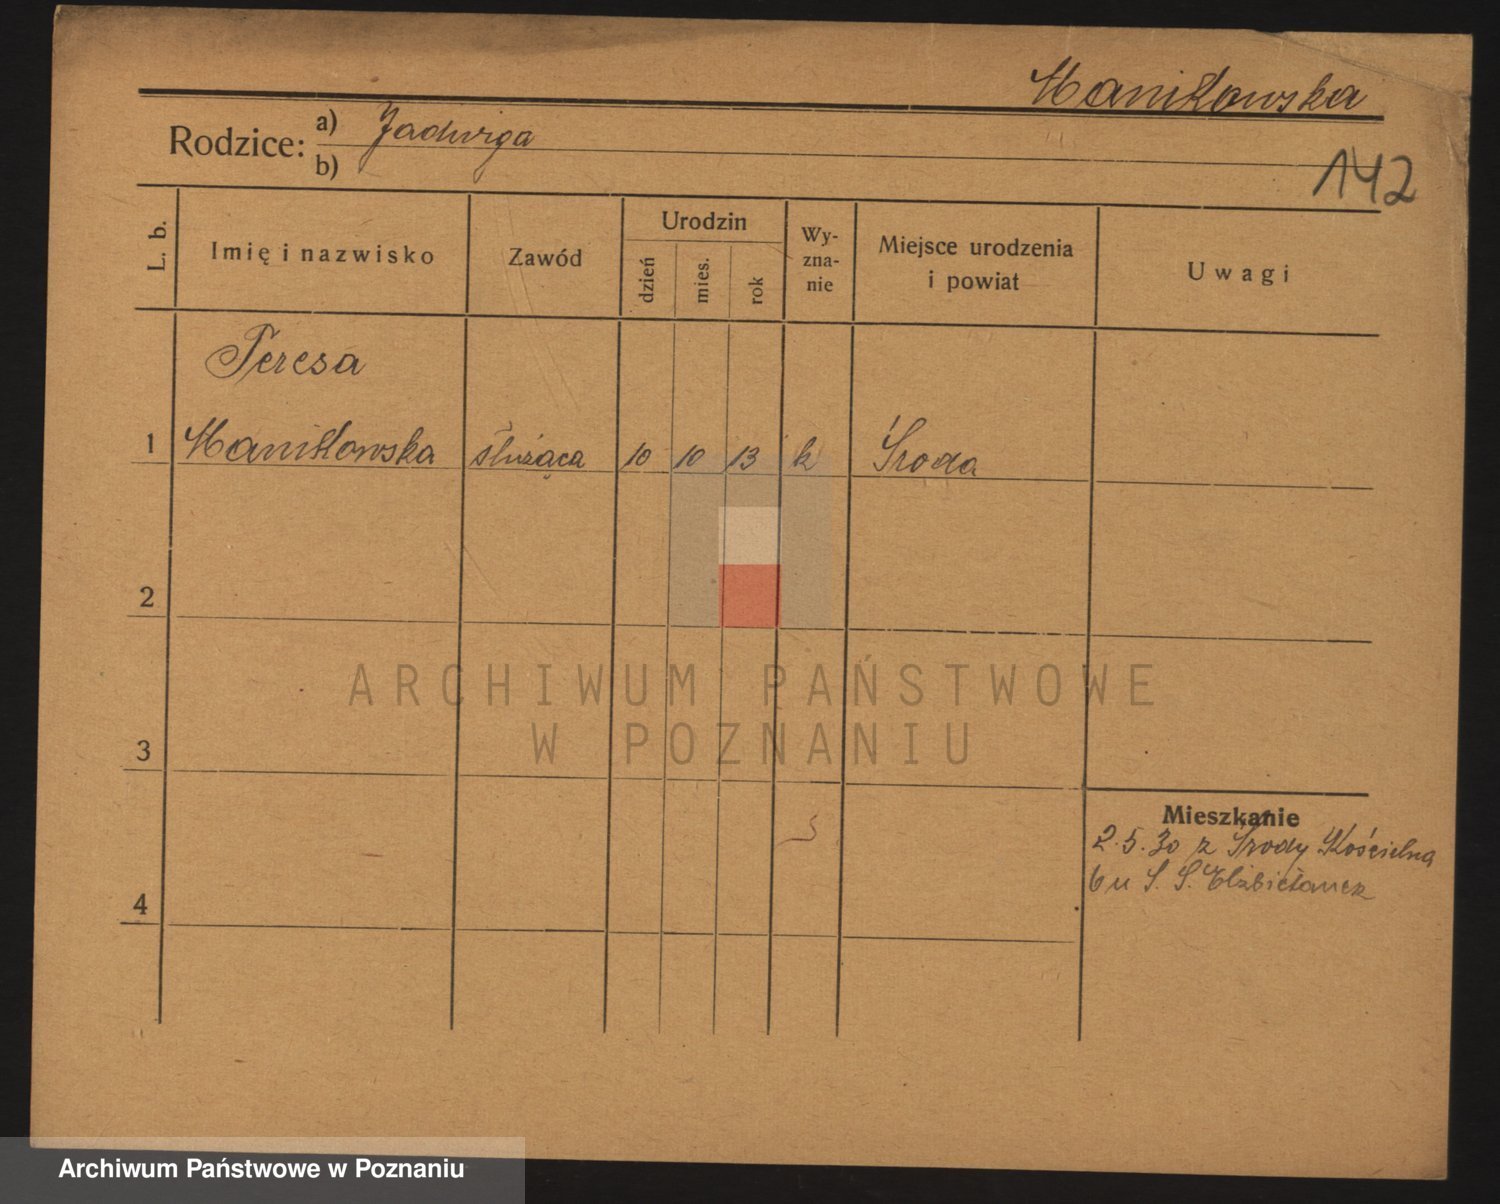 Maniłowska
Rodzice: a) Jadwiga
b)
142
L. b.
Imię i nazwisko
Zawód
Urodzin
dzień
mies.
rok
Wy-
zna-
nie
Miejsce urodzenia
i powiat
Uwagi
Teresa
1 Maniłowska służąca 10 10 13 k Środa
2
3
4
Mieszkanie
2.5.30 z Środy Kościelna
6 u S. S. Elżbietanek
ARCHIWUM PAŃSTWOWE
W POZNANIU
Archiwum Państwowe w Poznaniu